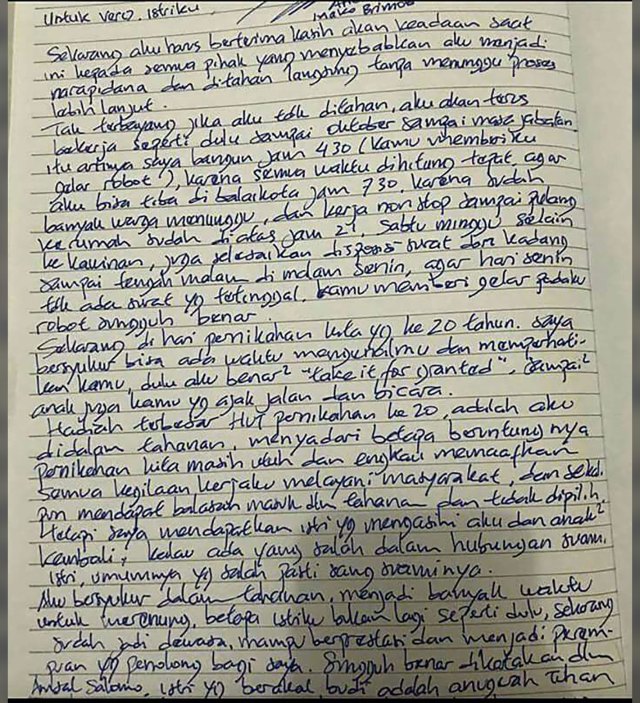 Untuk Vero, istriku,
Mako Brimob
Sekarang aku harus berterima kasih akan keadaan saat
ini kepada semua pihak yang menyebabkan aku menjadi
narapidana dan ditahan langsung tanpa menunggu proses
lebih lanjut.
Tak terbayang jika aku tdk ditahan, aku akan terus
bekerja seperti dulu sampai oktober sampai masa jabatan.
itu artinya saya bangun jam 430 (kamu memberiku
gelar robot), karena semua waktu dihitung tepat, agar
aku bisa tiba di balaikota jam 730, karena sudah
banyak warga menunggu, dan kerja non stop sampai pulang
ke rumah sudah diatas jam 21. Sabtu minggu selain
ke kawinan, juga selesaikan disposisi surat dan kadang
sampai tengah malam di malam senin, agar hari senin
tdk ada surat yg tertinggal. kamu memberi gelar padaku
robot sungguh benar.
Sekarang di hari pernikahan kita yg ke 20 tahun. saya
bersyukur bisa ada waktu mengenalmu dan memperhati-
kan kamu, dulu aku benar² "take it for granted", sampai²
anak juga kamu yg ajak jalan dan bicara.
Hadiah terbesar HUT pernikahan ke 20, adalah aku
didalam tahanan, menyadari betapa beruntungnya
pernikahan kita masih utuh dan engkau memaafkan
semua kegilaan kerjaku melayani masyarakat, dan seka-
pun mendapat balasan masuk dlm tahanan dan tidak dipilih.
tetapi saya mendapatkan istri yg mengasihi aku dan anak²
kembali; kalau ada yang salah dalam hubungan suami,
istri, umumnya yg salah pasti sang suaminya.
Aku bersyukur dalam tahanan, menjadi banyak waktu
untuk merenung, betapa istriku bukan lagi seperti dulu, sekarang
sudah jadi dewasa, mampu berprestasi dan menjadi perem-
puan yg penolong bagi saya. Sungguh benar dikatakan dlm
Amsal Salomo, istri yg berakal budi adalah anugerah Tuhan